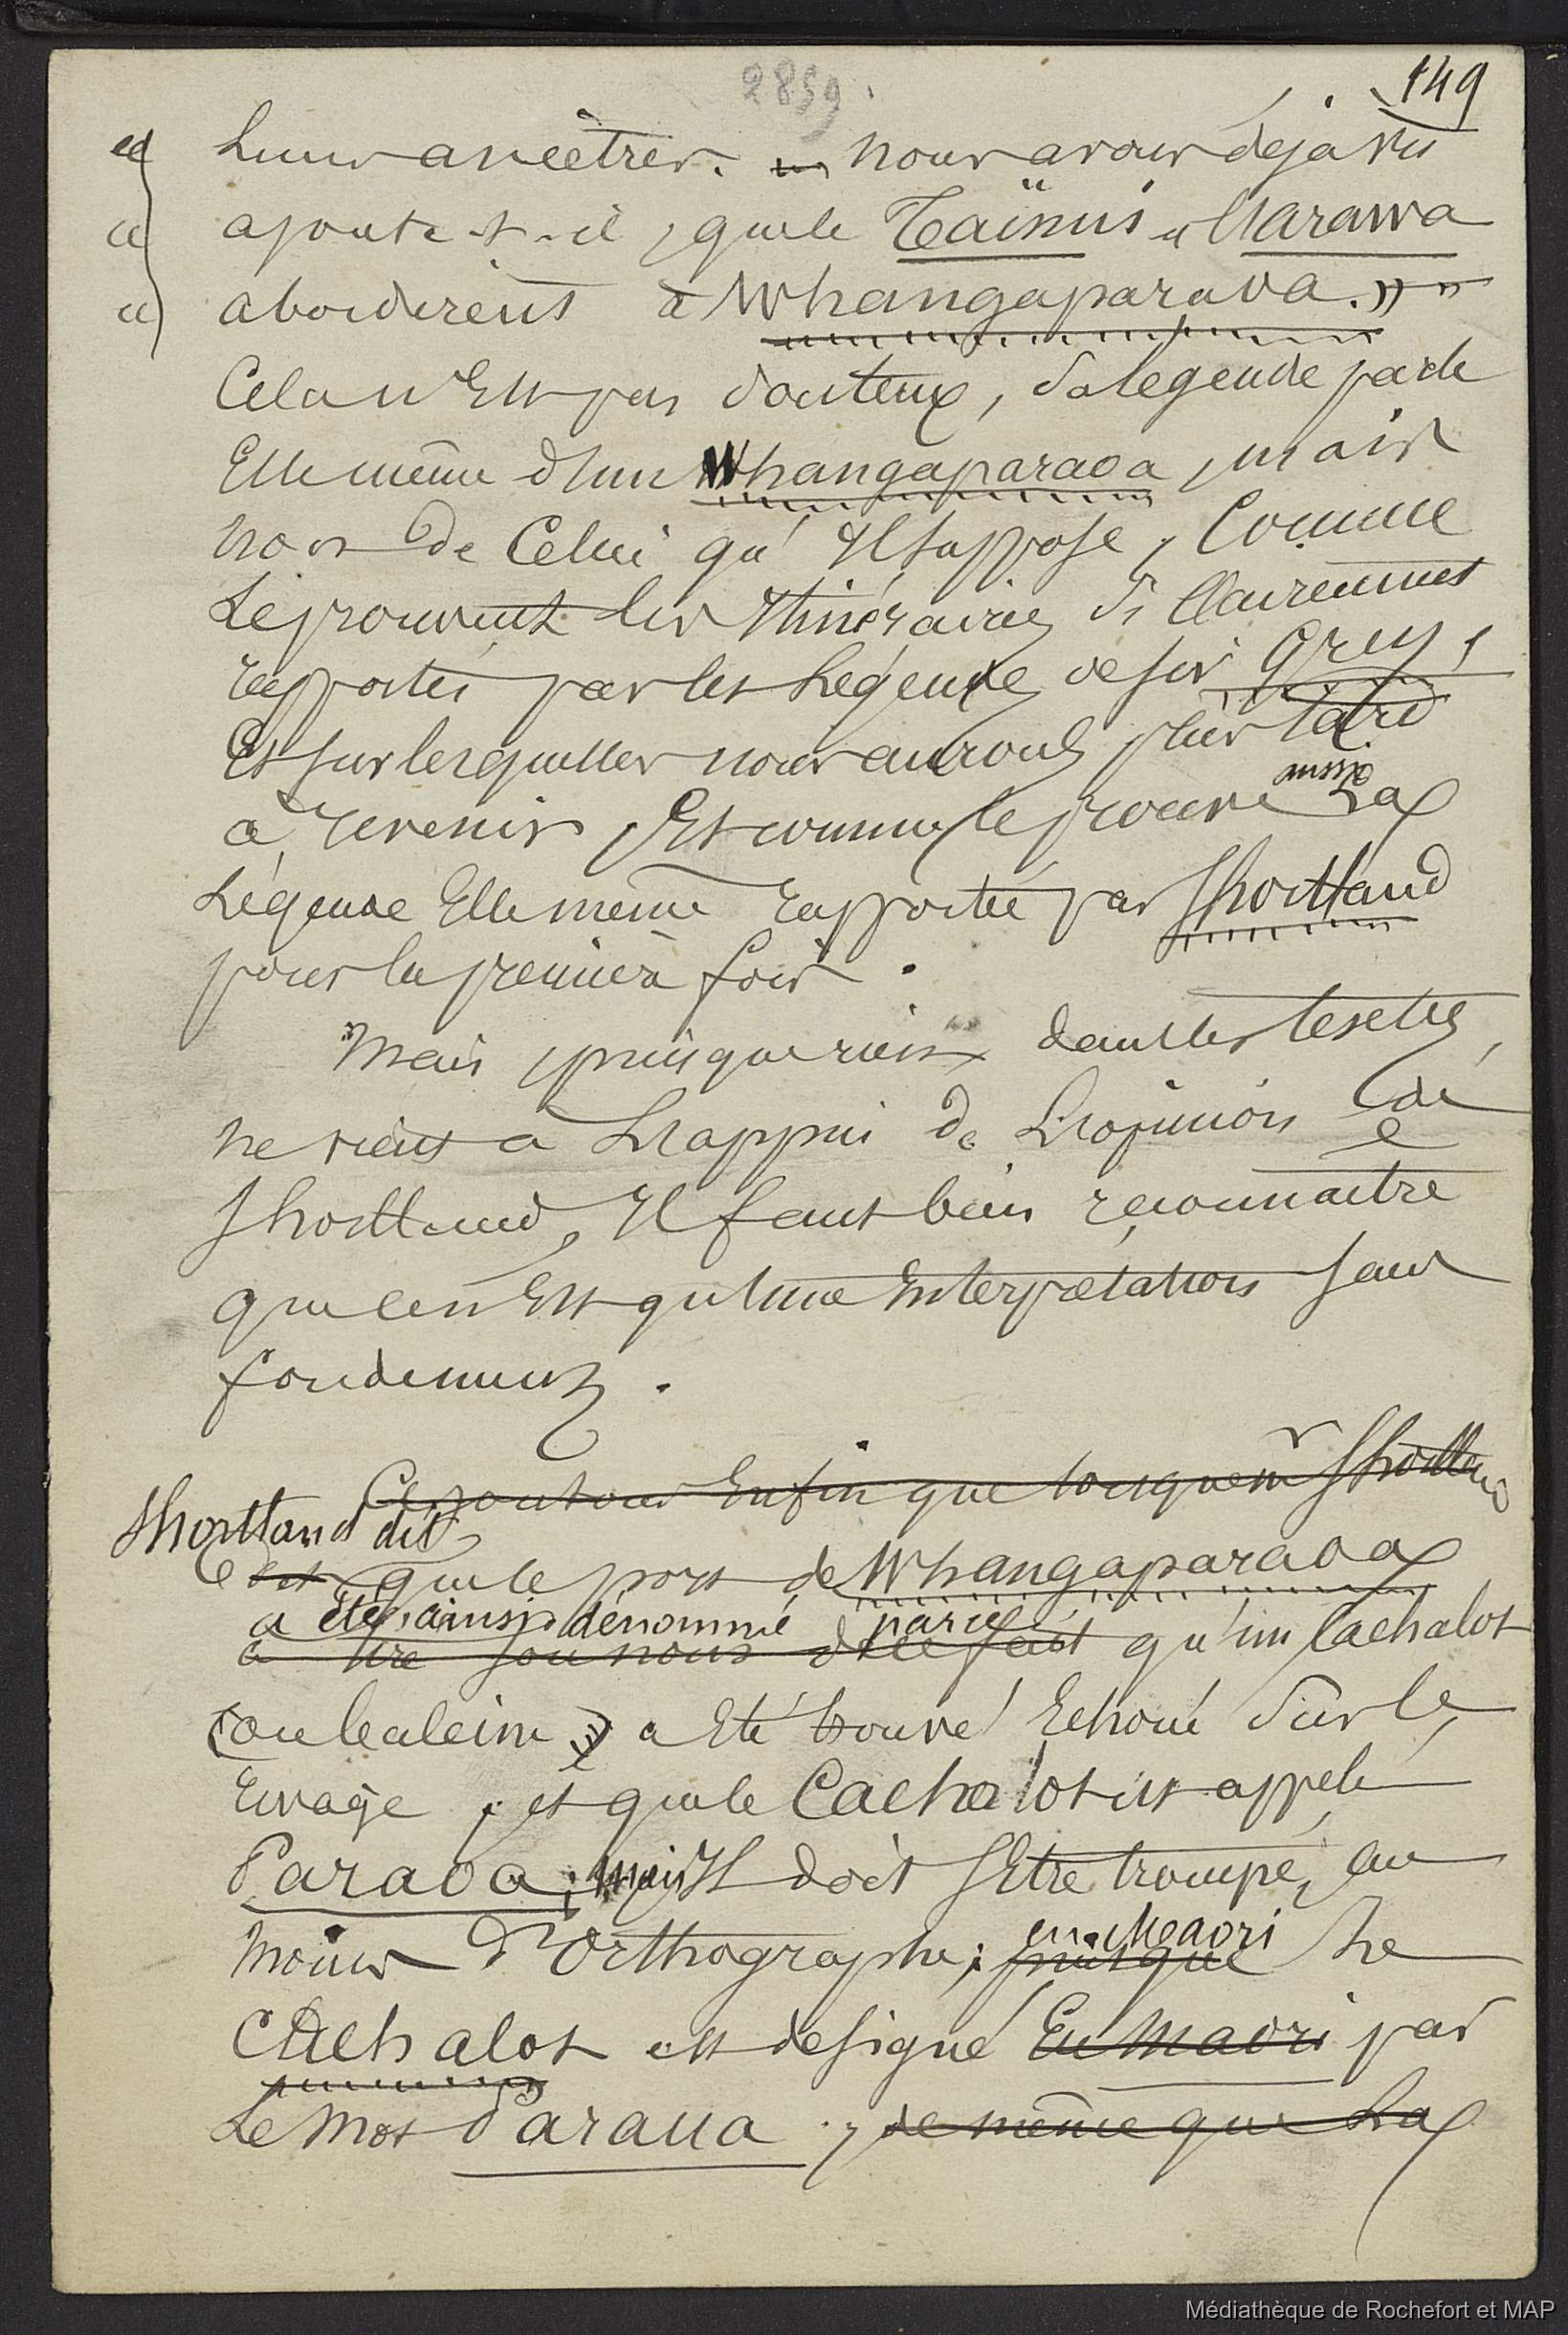 2859.
149
« leurs ancêtres. nous avons déjà vu
« ajoute-t-il, que le Taïnui et l'Arawa
« abordèrent à Whangaparaoa. »
Cela n'Est pas douteux, Sa légende parle
Elle même d'un Whangaparaoa, mais
non de Celui qu'Il suppose, Comme
Le prouvent les Itinéraires
rapportés par les Légendes de sir Grey,
Et sur lesquelles nous aurons plus tard
à revenir, Et comme le prouve aussi La
Légende Elle même rapportée par Shortland
pour la première fois.
Mais, puisque rien dans les textes,
ne vient à L'appui de L'opinion de
Shortland, Il faut bien reconnaître
que ce n'Est qu'Une Interprétation sans
fondement.
Ajoutons Enfin que lorsque Mr Shortland
Shortland dit
dit que le port de Whangaparaoa
a été ainsi dénommé parce
a tiré son nom de ce fait qu'un Cachalot
(ou baleine) a Eté trouvé Echoué Sur le
rivage, et que le Cachalot est appelé
Paraoa; mais Il doit s'Etre trompé, au
moins d'Orthographe; puisque en Maori Le
Cachalot est désigné En Maori par
Le Mot Paraua, de même que La
Médiathèque de Rochefort et MAP